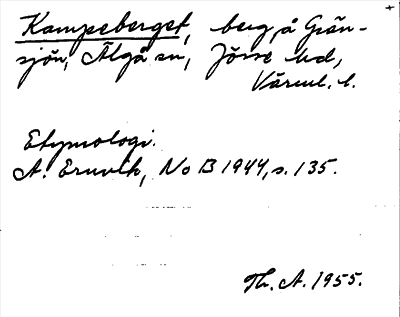 Kampeberget, berg å Grän-
sjön, Älgå sn, Jösse hd,
Värml. l.
Etymologi.
A. Ernvik, No B 1944, s. 135.
Th. A. 1955.